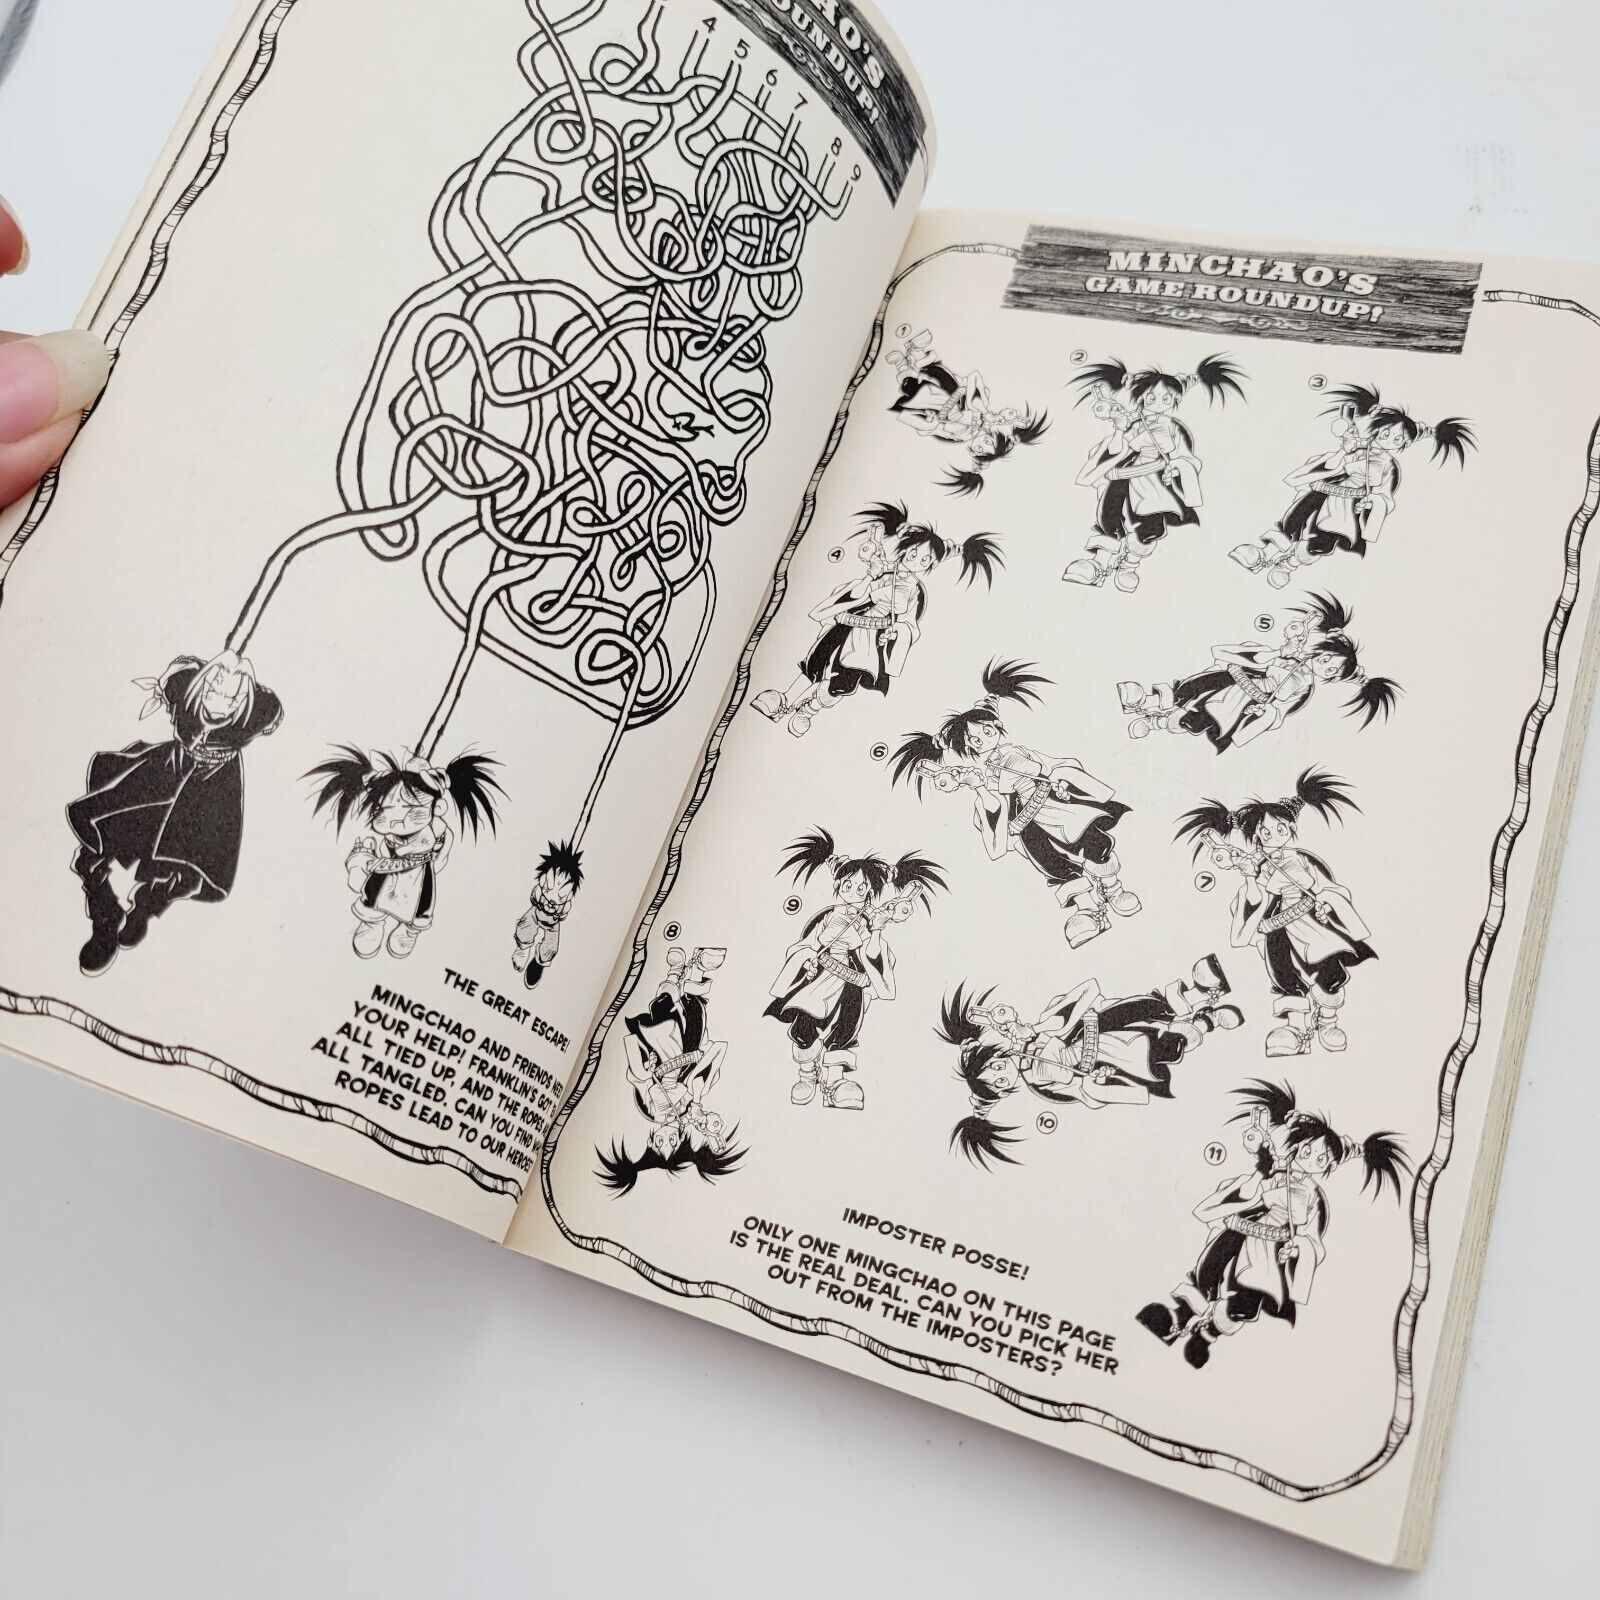 4
5
6
7
8
9
THE GREAT ESCAPE!
MINGCHAO AND FRIENDS
YOUR HELP! FRANKLIN'S GOT
ALL TIED UP, AND THE ROPES
ALL TANGLED. CAN YOU FIND
ROPES LEAD TO OUR HEROES?
MINCHAO'S
GAME ROUNDUP!
1
2
3
4
5
6
7
8
9
10
11
IMPOSTER POSSE!
ONLY ONE MINGCHAO ON THIS PAGE
IS THE REAL DEAL. CAN YOU PICK HER
OUT FROM THE IMPOSTERS?